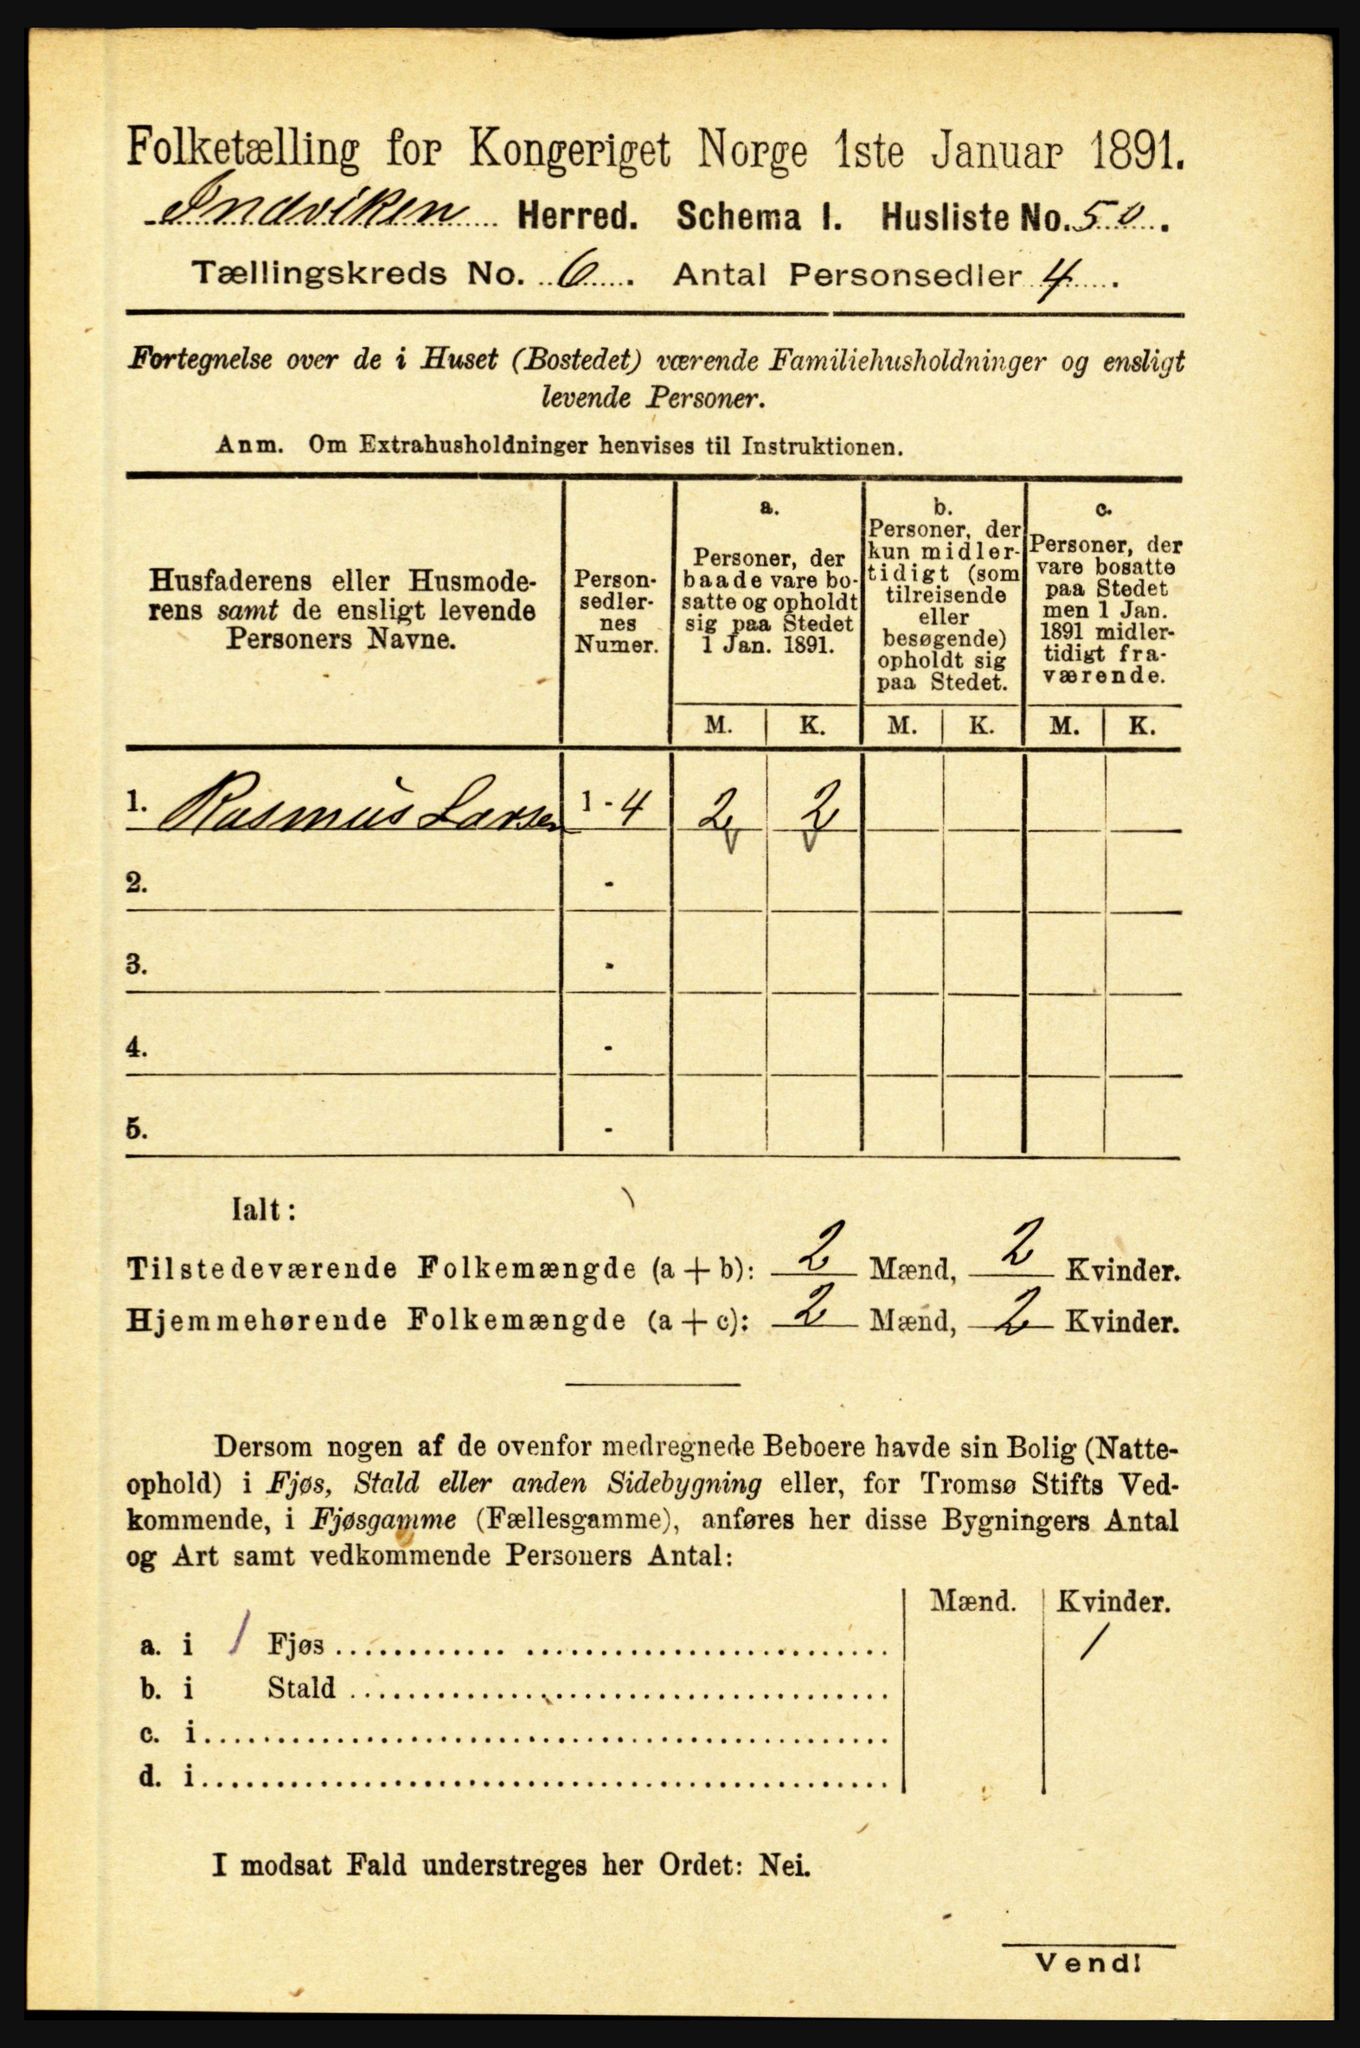 Folketælling for Kongeriget Norge 1ste Januar 1891.
Indviken Herred. Schema I. Husliste No. 50.
Tællingskreds No. 6. Antal Personsedler 4.
Fortegnelse over de i Huset (Bostedet) værende Familiehusholdninger og ensligt
levende Personer.
Anm. Om Extrahusholdninger henvises til Instruktionen.
Husfaderens eller Husmode-
rens samt de ensligt levende
Personers Navne.
Person-
sedler-
nes
Numer.
a.
Personer, der
baade vare bo-
satte og opholdt
sig paa Stedet
1 Jan. 1891.
b.
Personer, der
kun midler-
tidigt (som
tilreisende
eller
besøgende)
opholdt sig
paa Stedet.
c.
Personer, der
vare bosatte
paa Stedet
men 1 Jan.
1891 midler-
tidigt fra-
værende.
M. K. M. K. M. K.
1. Rasmus Larsen 1 - 4 2 2
2. -
3. -
4. -
5. -
Ialt:
Tilstedeværende Folkemængde (a + b): 2 Mænd, 2 Kvinder.
Hjemmehørende Folkemængde (a + c): 2 Mænd, 2 Kvinder.
Dersom nogen af de ovenfor medregnede Beboere havde sin Bolig (Natte-
ophold) i Fjøs, Stald eller anden Sidebygning eller, for Tromsø Stifts Ved-
kommende, i Fjøsgamme (Fællesgamme), anføres her disse Bygningers Antal
og Art samt vedkommende Personers Antal:
Mænd. Kvinder.
a. i 1 Fjøs 1
b. i Stald
c. i
d. i
I modsat Fald understreges her Ordet: Nei.
Vend!